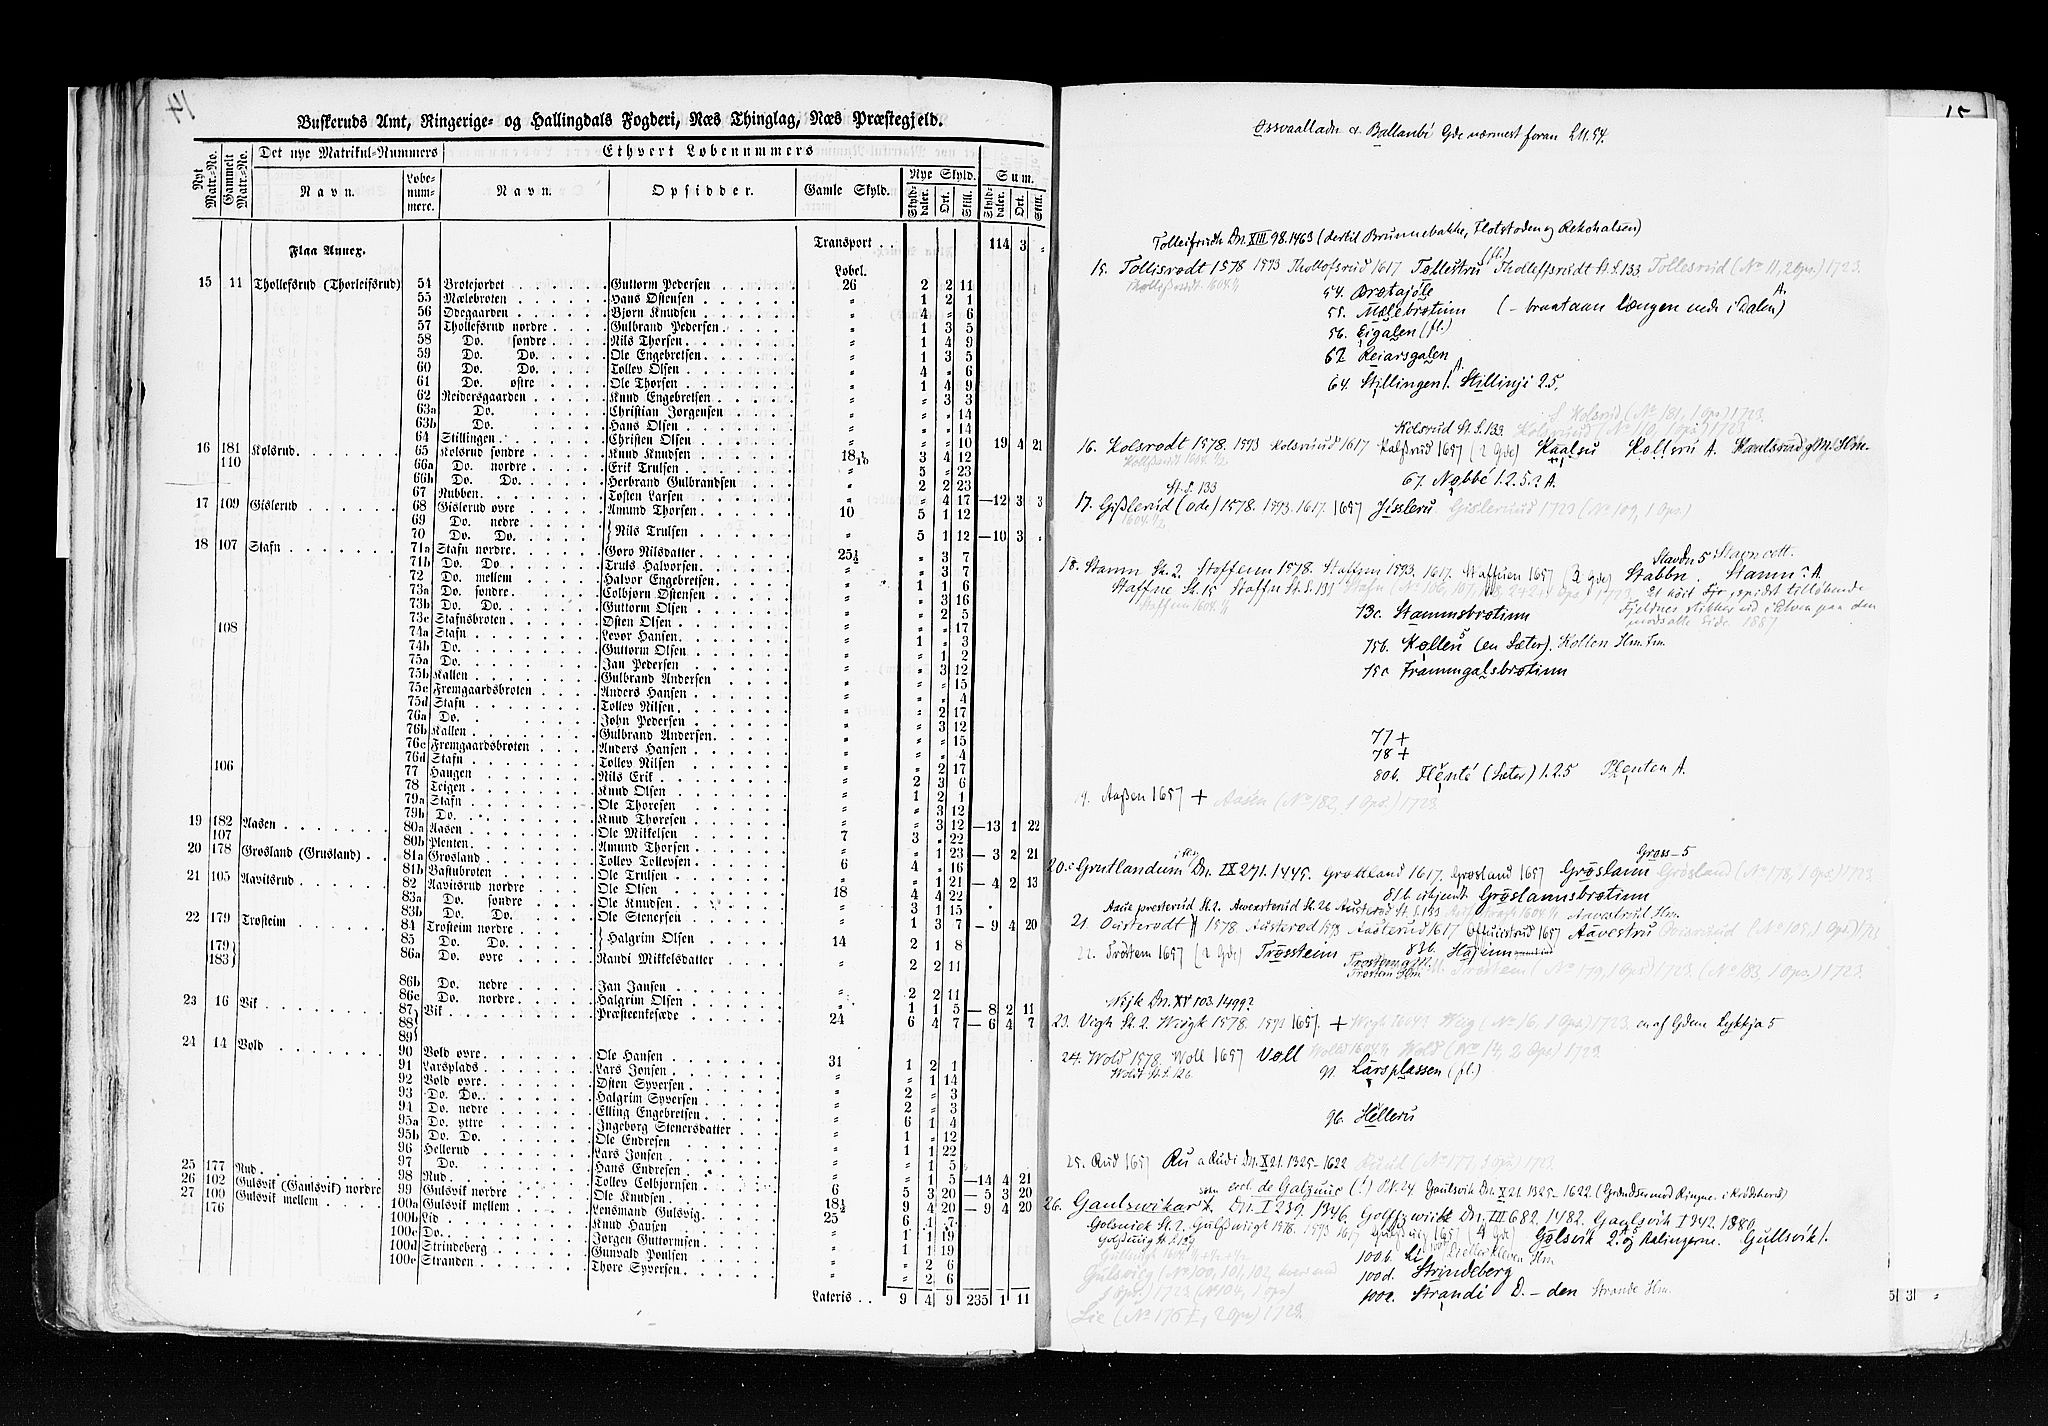 14
Buskeruds Amt, Ringerige- og Hallingdals Fogderi, Næs Thinglag, Næs Præstegjeld.
Nyt Matr.-No. Gammelt Matr.-No. Det nye Matrikul-Nummers Ethvert Løbenummers
Navn. Løbenummere. Navn. Opsidder. Gamle Skyld. Nye Skyld. Sum.
Skylddaler. Ort. Skill. Skylddaler. Ort. Skill.
Flaa Annex. Transport . . 114 3 „
Løbel.
15 11 Thollefsrud (Thorleifsrud) 54 Brotejordet Guttorm Pedersen 26 2 2 11
55 Mælebroten Hans Østensen „ 1 2 1
56 Ødegaarden Bjørn Knudsen „ 4 „ 6
57 Thollefsrud nordre Gulbrand Pedersen „ 1 3 5
58 Do. søndre Nils Thorsen „ 1 4 9
59 Do. Do. Ole Engebretsen „ 1 3 5
60 Do. Do. Tollev Olsen „ 4 „ 6
61 Do. østre Ole Thorsen „ 1 4 9
62 Reidersgaarden Knud Engebretsen „ „ 3 3
63a Do. Christian Jørgensen „ „ „ 14
63b Do. Hans Olsen „ „ „ 14
64 Stillingen Christen Olsen „ „ „ 10 19 4 21
16 181 Kolsrud 65 Kolsrud søndre Knud Knudsen 18 1/10 3 4 12
110 66a Do. nordre Erik Trulsen „ 5 „ 23
66b Do. Do. Herbrand Gulbrandsen „ 2 2 23
67 Nubben Tosten Larsen „ „ 4 17 —12 3 3
17 109 Gislerud 68 Gislerud øvre Amund Thorsen 10 5 1 12
69 Do. nedre
70 Do. Do. Nils Trulsen „ 5 1 12 —10 3 „
18 107 Stafn 71a Stafn nordre Goro Nilsdatter 25½ „ 3 7
71b Do. Do Truls Halvorsen „ „ 3 7
72 Do. mellem Halvor Engebretsen „ 1 1 6
73a Do. søndre Colbjørn Østensen „ „ 3 16
73b Do. Do. Guttorm Olsen „ „ 2 5
73c Stafnsbroten Østen Olsen „ „ „ 17
108 74a Stafn Levor Hansen „ 1 „ 3
74b Do. Guttorm Olsen „ „ 1 2
75a Do. Jan Pedersen „ „ 3 12
75b Kallen Gulbrand Andersen „ „ „ 15
75c Fremgaardsbroten Anders Hansen „ „ „ 4
75d Stafn Tollev Nilsen „ „ 2 17
76a Do. John Pedersen „ „ 3 12
76b Kallen Gulbrand Andersen „ „ „ 15
76c Fremgaardsbroten Anders Hansen „ „ „ 4
76d Stafn Tollev Nilsen „ „ 2 17
106 77 Haugen Nils Erik „ 2 3 6
78 Teigen Knud Olsen „ 1 2 1
79a Stafn Ole Thoresen „ „ 3 12
79b Do. Knud Thoresen „ „ 3 12 —13 1 22
19 182 Aasen 80a Aasen Ole Mikkelsen 7 3 „ 22
107 80b Plenten Amund Thorsen „ „ 1 23 — 3 2 21
20 178 Grøsland (Grusland) 81a Grøsland Tollev Tollevsen 6 4 „ 16
81b Bastubroten Ole Trulsen „ „ 1 21 — 4 2 13
21 105 Aavitsrud 82 Aavitsrud nordre Ole Olsen 18 4 4 22
83a Do. søndre Ole Knudsen „ 3 1 15
83b Do. Do. Ole Stenersen „ 1 3 7 — 9 4 20
22 179 Trøsteim 84 Trøsteim nordre
85 Do. Do. Halgrim Olsen 14 2 1 8
179 183 86a Do. øvre Randi Mikkelsdatter „ 2 2 11
86b Do. nedre Jan Jansen „ 2 2 11
86c Do. nordre Halgrim Olsen „ 1 1 5 — 8 2 11
23 16 Vik 87 Vik Præsteenkesæde 24 6 4 7 — 6 4 7
88
89
24 14 Vold 90 Vold øvre Ole Hansen 31 1 2 1
91 Larsplads Lars Jonsen „ „ 1 14
92 Vold øvre Østen Syversen „ 2 „ 3
93 Do. Do. Halgrim Syversen „ 2 „ 3
94 Do. nedre Elling Engebretsen „ 6 1 4
95a Do. yttre Ingeborg Stenersdatter „ 1 „ 12
95b Do. Do. Ole Endresen „ 1 1 22
96 Hellerud Lars Jonsen „ „ 1 5
97 Do. Hans Endresen „ „ 1 5 —14 4 21
25 177 Rud 98 Rud Tollev Colbjørnsen 6 5 3 20 — 5 3 20
26 102 Gulsvik (Gaulsvik) nordre 99 Gulsvik nordre Ole Knudsen 18½ 9 4 20 — 9 4 20
27 100 Gulsvik mellem 100a Gulsvik mellem Lensmand Gulsvig 25 6 1 7
176 100b Lid Knud Hansen „ 1 1 19
100c Do. Jørgen Guttormsen „ 1 1 19
100d Strindeberg Gunvald Poulsen „ „ 2 6
100e Stranden Thore Syversen „ „ 2 6
Lateris . . 9 4 9 235 1 11
15
Øssvaalladn & Ballanbé Gde nærmest foran L.N. 54.
Tolleifsrudh Dn. XIII 98. 1463 (dertil Brunnebakke, Flotstoden og Rekohalsen)
15. Tollisrødt 1578 1593 Thollofsrud 1617 Tøllestru (fl.) Tholleffsrudt St. S. 133 Tollesrud (No 11, 2 Ops.) 1723.
54. Brøtajøle
55. Mælebrøtinn (– braataan længen nede i Dalen) A.
56. Eigalen (fl.)
62 Reiarsgalen
64. Stillingen 1. A. Stillinji 2.5.
Kolsrud (No 181, 1 Ops) 1723
Kolsrud St. S. 133 Kolsrud (No 110, 1 Ops) 1723
16. Kolsrødt 1578. 1593 Kolsruud 1617 Kalssrud 1657 (2 Gde) Kaalsu Kolleru A. Kaulsrud gM. Hm.
67. Nobbé 1.2.5.? A.
St. S. 133
17. Gisslerud (øde) 1578. 1593. 1617. 1657 Jissleru Gislerud 1723 (No 109, 1 Ops.)
Stavdn 5 Stavn vett.
18. Stamn Sk. 2. Stoffenn 1578. Staffen 1593. 1617. Staffuen 1657 (3 Gde) Stabbn. Stamn? A.
Staffne Sk. 15 Staffn St. S. 133 Et höit Fjr, spidst tilløbende
73c. Stammsbrøtinn Fjeldnes stikker ud i Elven paa den modsatte Side. 1887
75b. Kølleń (en Sæter). Kollen Hm. Fm.
75c Frammgalsbrøtinn
77 +
78 +
80b. Plenté (Sæter) 1.2.5 Plenten A.
19. Aassen 1657 + Aasen (No 182, 1 Ops.) 1723
Grøss – 5
20. Grutlandum Dn. IX 271. 1445. Grøtland 1617. Grøsland 1657 Grøslann Grøsland (No 178, 1 Ops.) 1723
81b. ubjent. Grøslannsbrøtinn
21. Ousterødt 1578 Austerød 1593 Austerud 1617 1657 Aavestru
22. Trøstem 1657 (2 Gde) Trøssteim 83b. Haginn
Trøstem Hm. Trøstem (No 179, 1 Ops) 1723. (No 183, 1 Ops.) 1723.
Wijk Dn. XV 103. 1499?
23. Vigh Sk. 2. Wiigk 1578. 1593 1657. + Wiig (No 16, 1 Ops.) 1723. en af Gdene Lykkja 5
24. Wold 1578 Woll 1657 Voll Wold (No 14, 2 Ops.) 1723.
Wold St. S. 126. 91 Larsplassen (fl.)
96. Helleru
25. Rud 1657 Ru a Rudi Dn. X 21. 1325–1622 Ruud (No 177, 1 Ops) 1723.
eccl. de Galzuur (!) P.N. 24 Gaulsvik Dn. X 21. 1325–1622.
26. Gaulsvikar Dn. I 239. 1346. Golffzwiik Dn. III 682. 1482. Gaulsvik I 342. 1380.
Golswick Sk. 2. Gulsswiigk 1578. 1593 1617 1657 (4 Gde) Gølsvik 2. og Ralingerne. Gullsvik 1.
100b. Li
Gulsvieg (No 100, 101, 102, hver med
100d. Strindeberg
1 Ops.) 1723 (No 104, 1 Ops)
100e. Strandi D. – den Strande Hm.
Lie (No 176, 2 Ops) 1723.
5 3 „